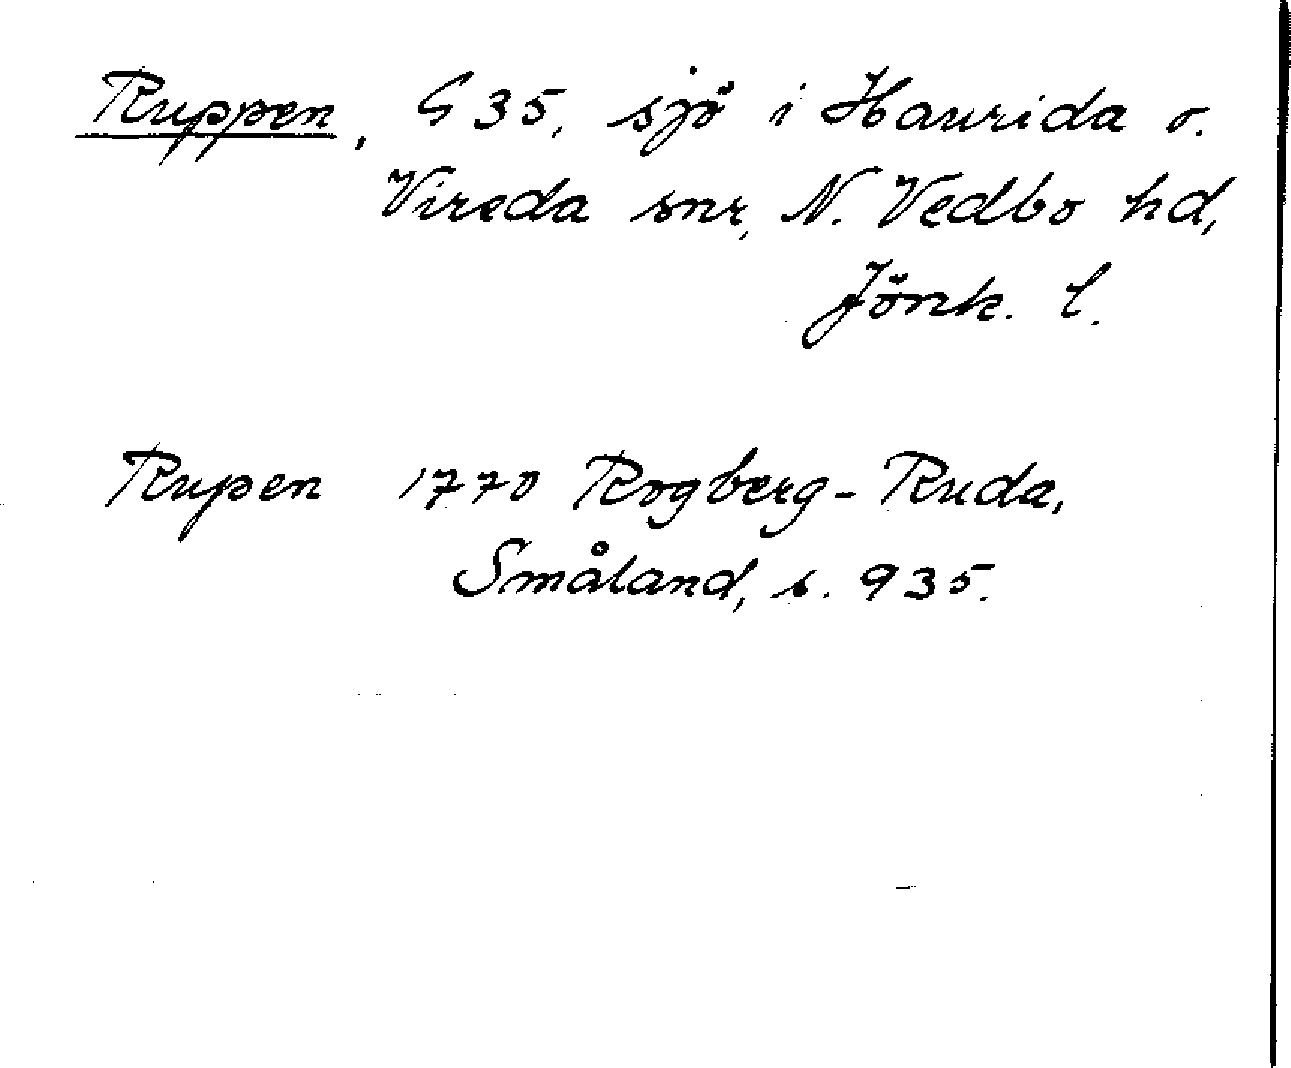 Ruppen, G 35, sjö i Haurida o.
Vireda snr, N. Vedbo hd,
Jönk. l.
Rupen 1770 Rogberg-Ruda,
Småland, s. 935.